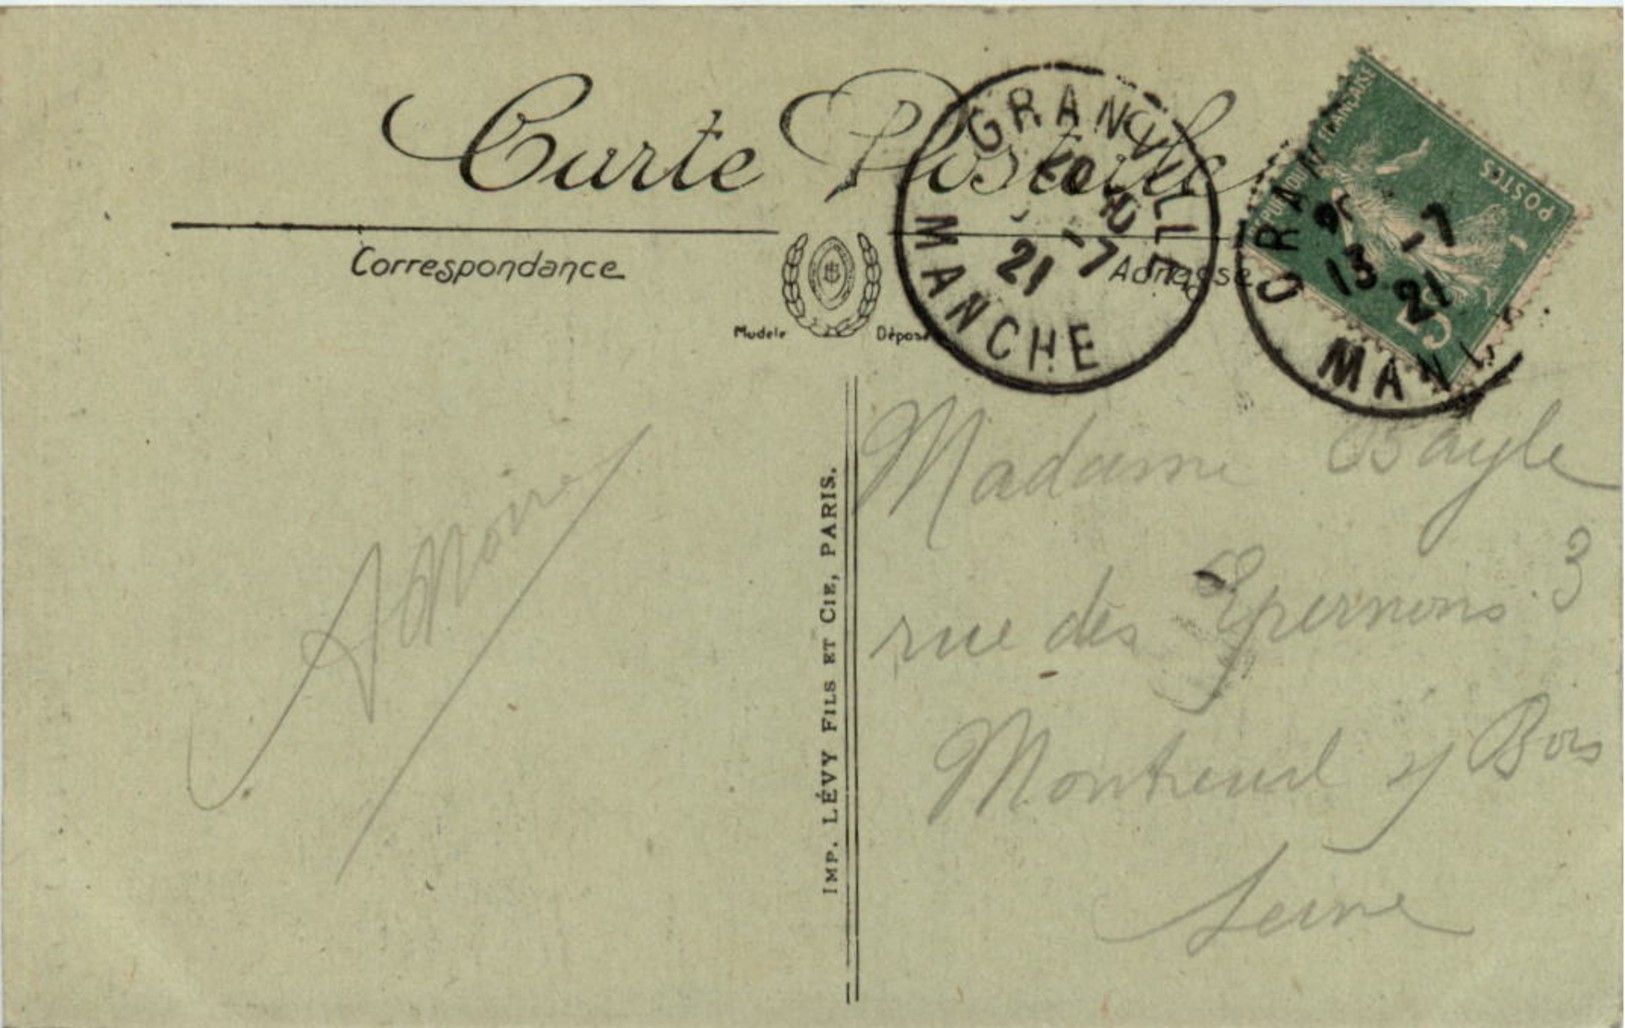 Carte Postale
Correspondance
Adresse
Modèle Déposé
GRANVILLE
-7
21
MANCHE
RÉPUBLIQUE FRANÇAISE
POSTES
5
GRAN
13 -7
21
MAN
IMP. LÉVY FILS ET CIE, PARIS.
Madame Bayle
rue des 3
Montreuil s/ Bois
Seine